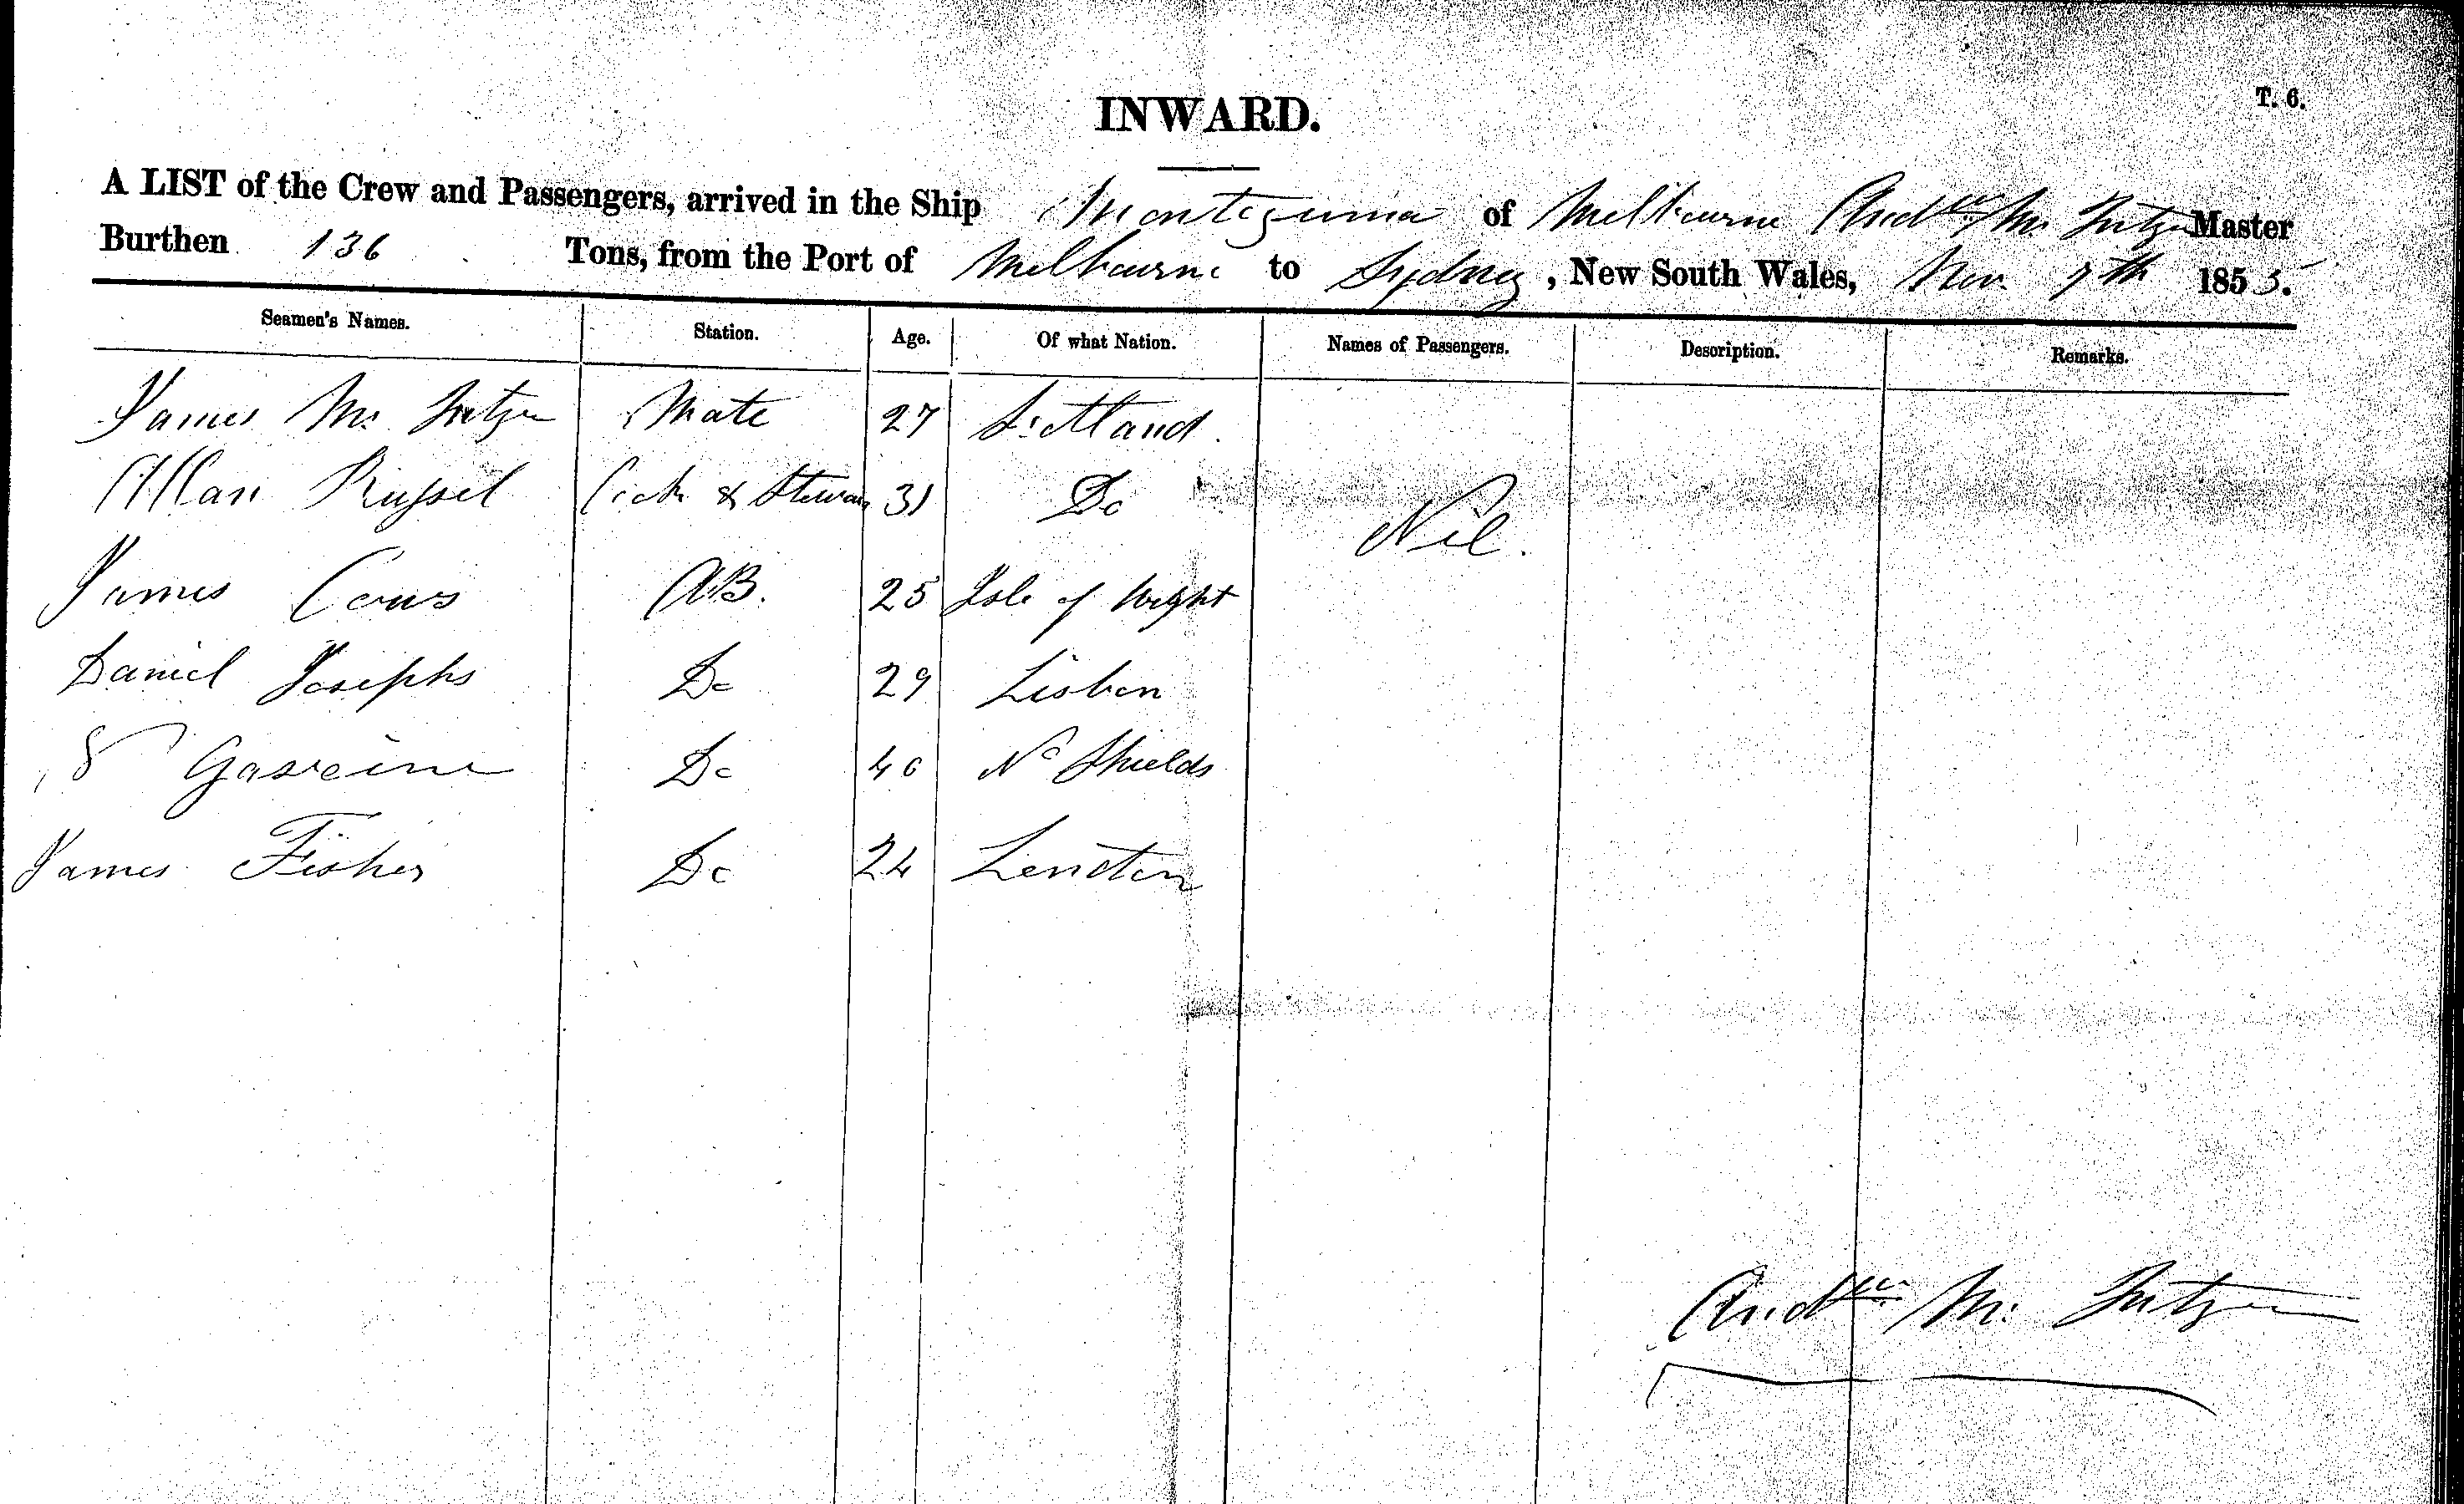 T. 6.
INWARD.
A LIST of the Crew and Passengers, arrived in the Ship Montezuma of Melbourne And<sup>w</sup> Mc Master
Burthen 136 Tons, from the Port of Melbourne to Sydney, New South Wales, Nov. 7th 1855.
Seamen's Names. Station. Age. Of what Nation. Names of Passengers. Description. Remarks.
James Mc Mate 27 Scotland.
Allan Russel Cook & Steward 31 Do
Nil.
James AB. 25 Isle of Wight
Daniel Josephs Do 29 Lisbon
Do 40 No Shields
James Fisher Do 24 London
And<sup>w</sup> Mc